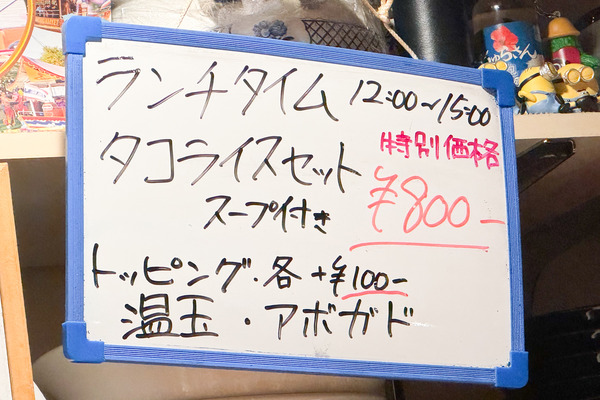 ランチタイム 12:00~15:00
タコライスセット 特別価格
スープ付き ¥800-
トッピング・各 +¥100-
温玉・アボガド